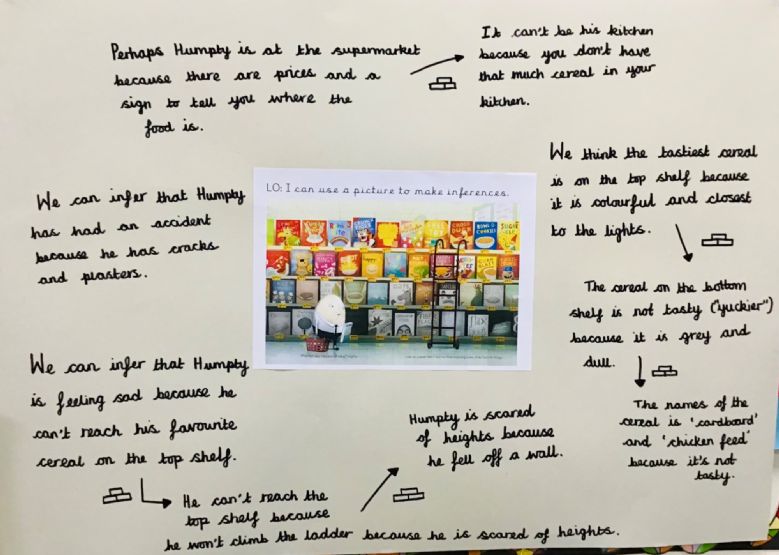 Perhaps Humpty is at the supermarket
because there are prices and a
sign to tell you where the
food is.
It can't be his kitchen
because you don't have
that much cereal in your
kitchen.
We think the tastiest cereal
is on the top shelf because
it is colourful and closest
to the lights.
We can infer that Humpty
has had an accident
because he has cracks
and plasters.
LO: I can use a picture to make inferences.
The cereal on the bottom
shelf is not tasty ("yuckier")
because it is grey and
dull.
We can infer that Humpty
is feeling sad because he
can't reach his favourite
cereal on the top shelf.
Humpty is scared
of heights because
he fell off a wall.
The names of the
cereal is 'cardboard'
and 'chicken feed'
because it's not
tasty.
He can't reach the
top shelf because
he won't climb the ladder because he is scared of heights.